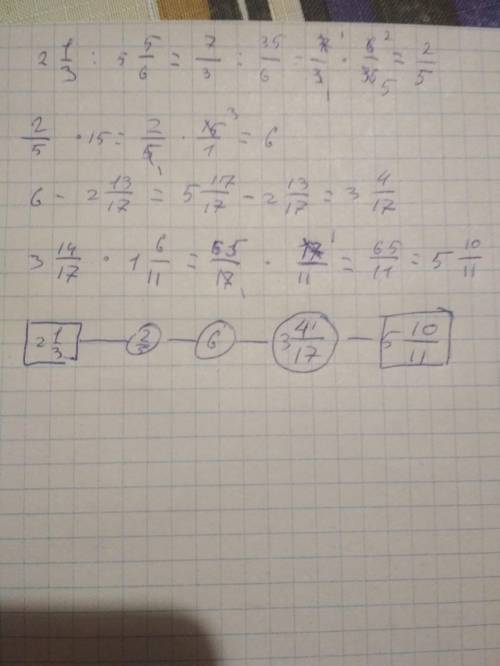 2 1/3 : 5 5/6 = 7/3 : 35/6 = 7/3 · 6/35 = 2/5
2/5 · 15 = 2/5 · 15/1 = 6
6 - 2 13/17 = 5 17/17 - 2 13/17 = 3 4/17
3 14/17 · 1 6/11 = 65/17 · 17/11 = 65/11 = 5 10/11
2 1/3 — 2/5 — 6 — 3 4/17 — 5 10/11